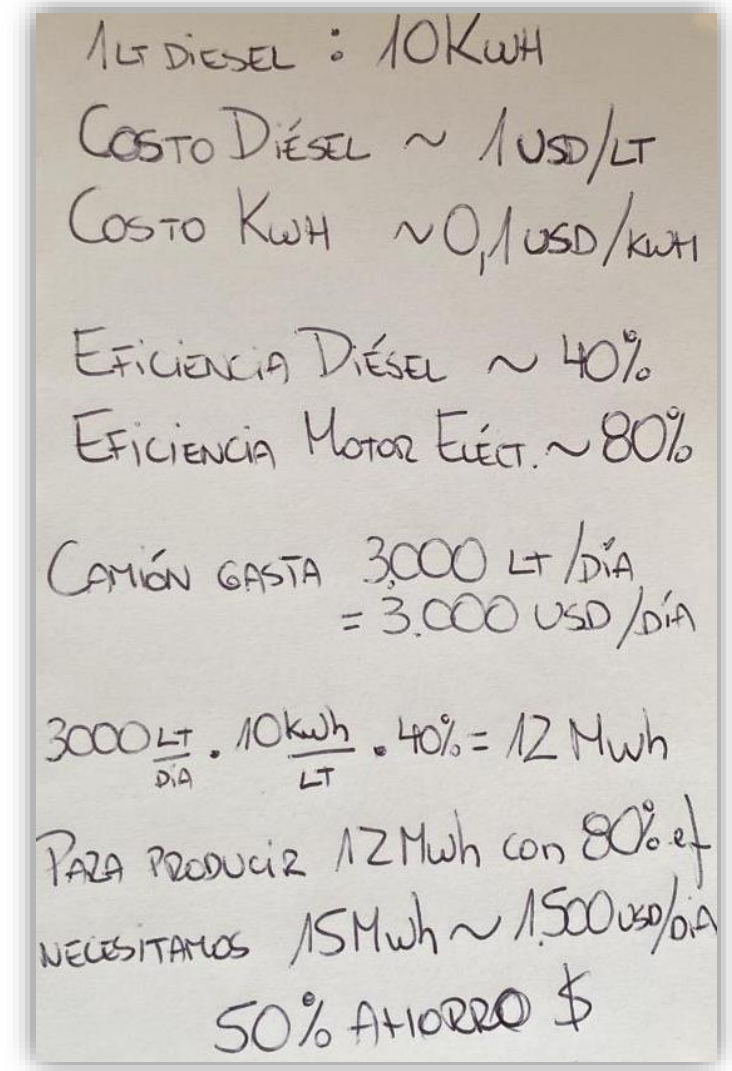 1 LT DIESEL : 10 KWH
COSTO DIÉSEL ~ 1 USD/LT
COSTO KWH ~ 0,1 USD/KWH
EFICIENCIA DIÉSEL ~ 40%
EFICIENCIA MOTOR ELÉCT. ~ 80%
CAMIÓN GASTA 3.000 LT/DÍA
= 3.000 USD/DÍA
3000 LT/DÍA . 10 kwh/LT . 40% = 12 Mwh
PARA PRODUCIR 12 Mwh con 80% ef
NECESITAMOS 15 Mwh ~ 1.500 USD/DÍA
50% AHORRO $